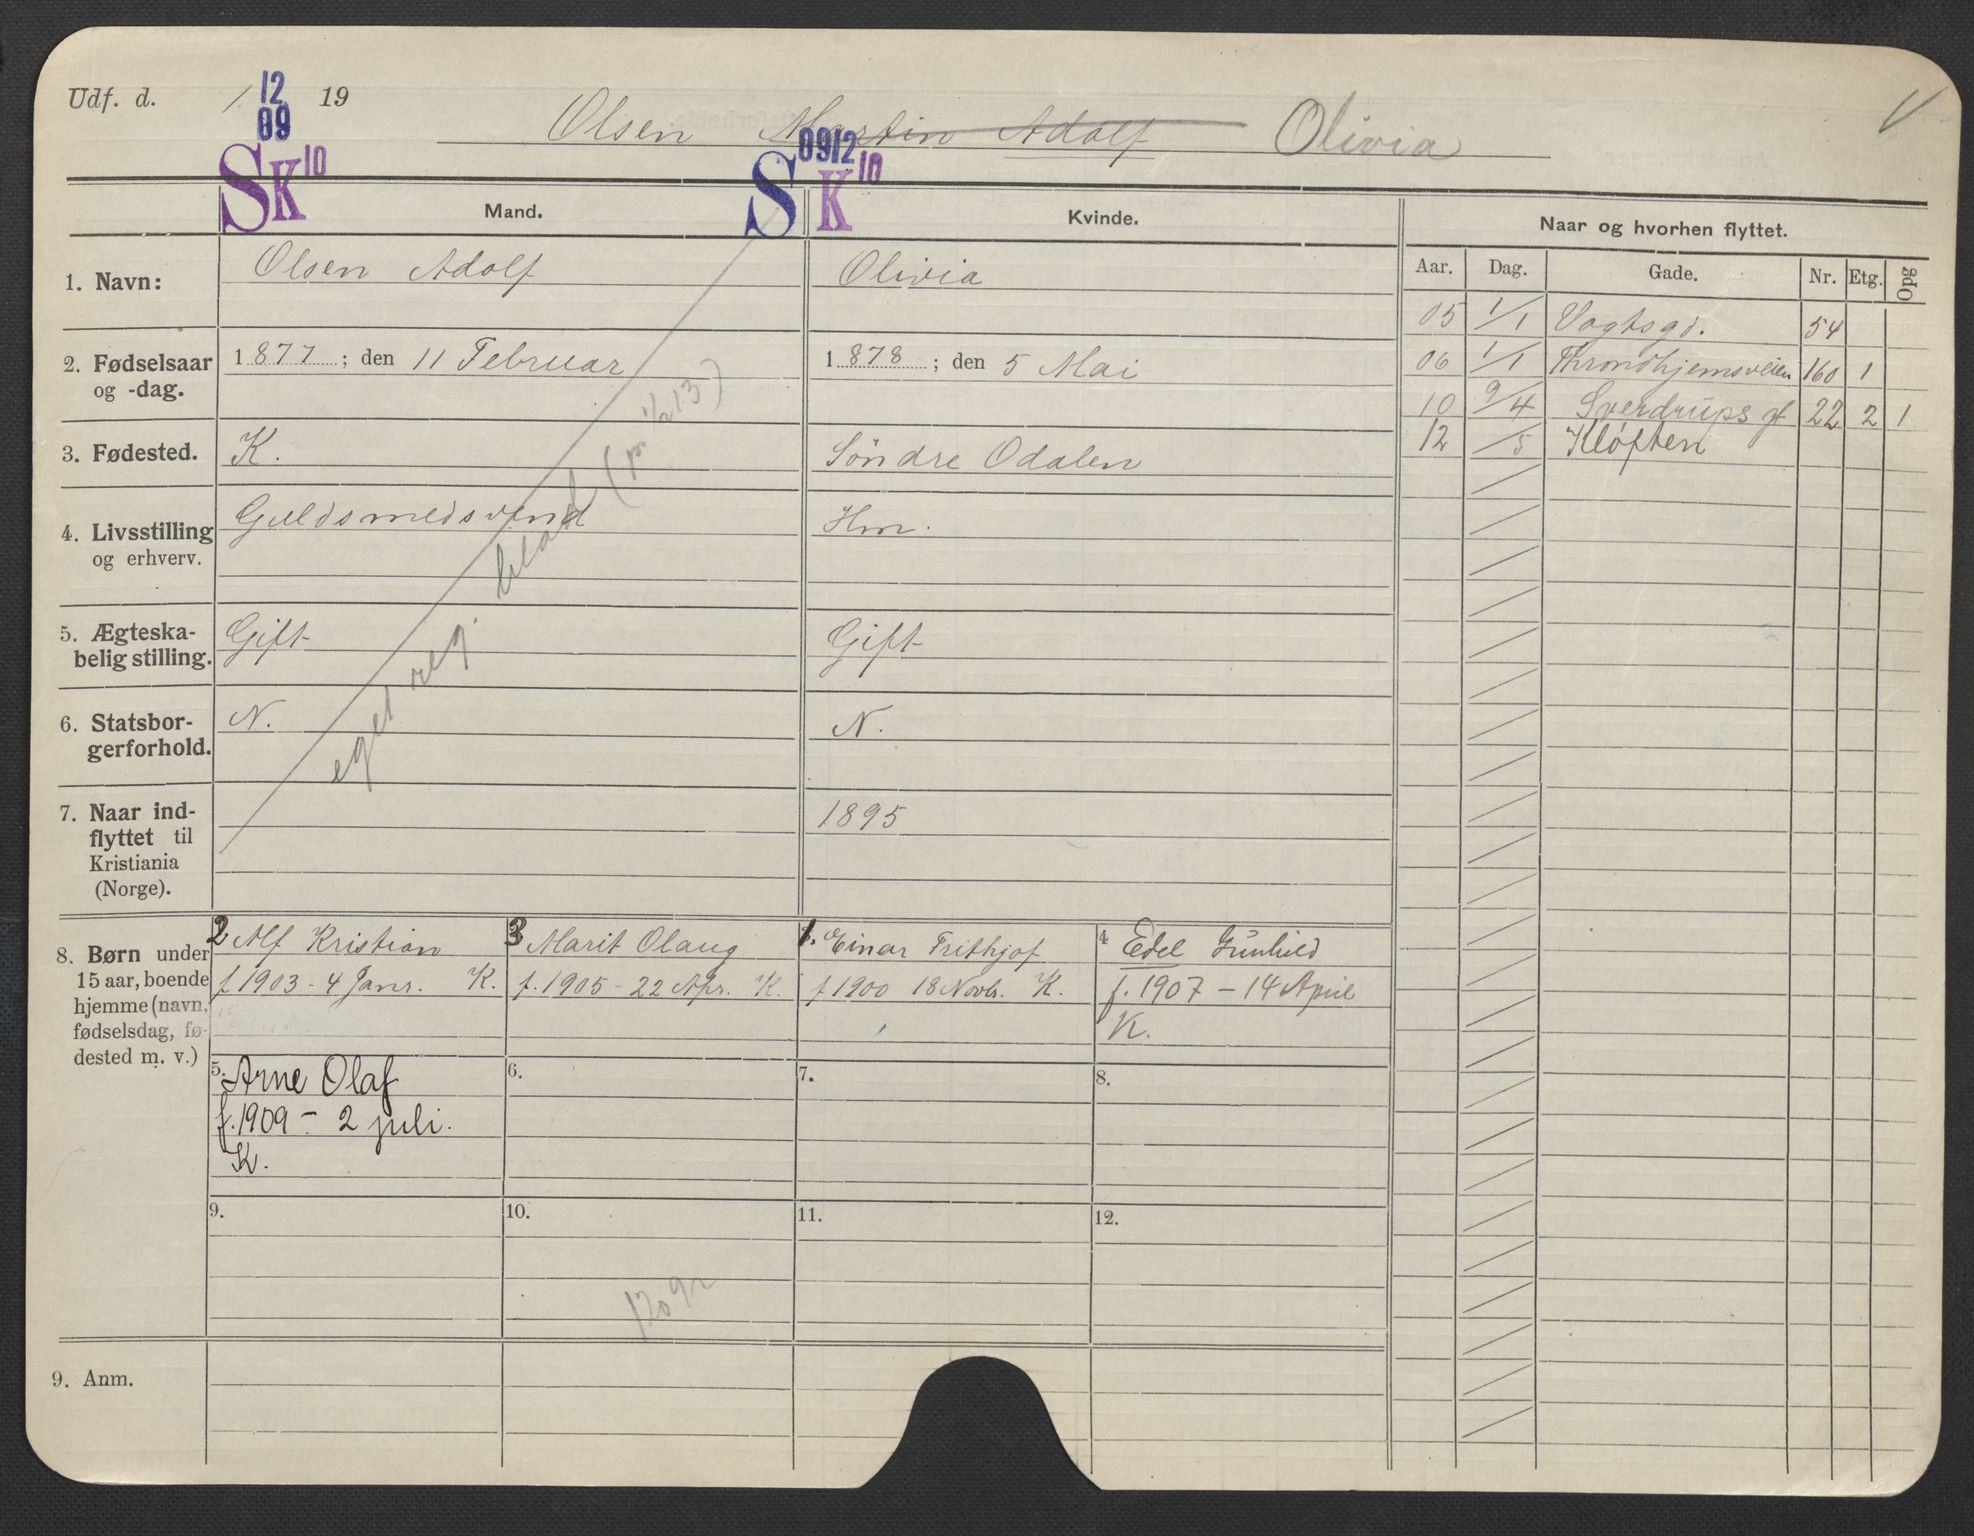 Udf. d. 1. 12 09 19
Olsen Martin Adolf Olivia
SK10
0912
SK10
Mand.
Kvinde.
Naar og hvorhen flyttet.
Aar. Dag. Gade. Nr. Etg. Opg
1. Navn: Olsen Adolf
Olivia
2. Fødselsaar
og -dag.
1877; den 11 Februar
1878; den 5 Mai
3. Fødested. K.
Söndre Odalen
4. Livsstilling
og erhverv.
Guldsmedsvend
Hm.
5. Ægteska-
belig stilling.
Gift
Gift
6. Statsbor-
gerforhold.
N.
N.
7. Naar ind-
flyttet til
Kristiania
(Norge).
1895
eget reg. blad (pr 1/2 13)
05 1/1 Vogtsgd. 54
06 1/1 Throndhjemsveien 160 1
10 9/4 Sverdrups gt 22 2 1
12 /5 Kløften
8. Børn under
15 aar, boende
hjemme (navn,
fødselsdag, fø-
dested m. v.)
2 Alf Kristian
f 1903 - 4 Janr. K.
3 Marit Olaug
f. 1905 - 22 Apr. K.
1. Einar Frithjof
f 1900 18 Novbr. K.
4 Edel Gunhild
f. 1907 - 14 April
K.
5. Arne Olaf
f. 1909 - 2 juli.
K.
6.
7.
8.
9.
10.
11.
12.
9. Anm.